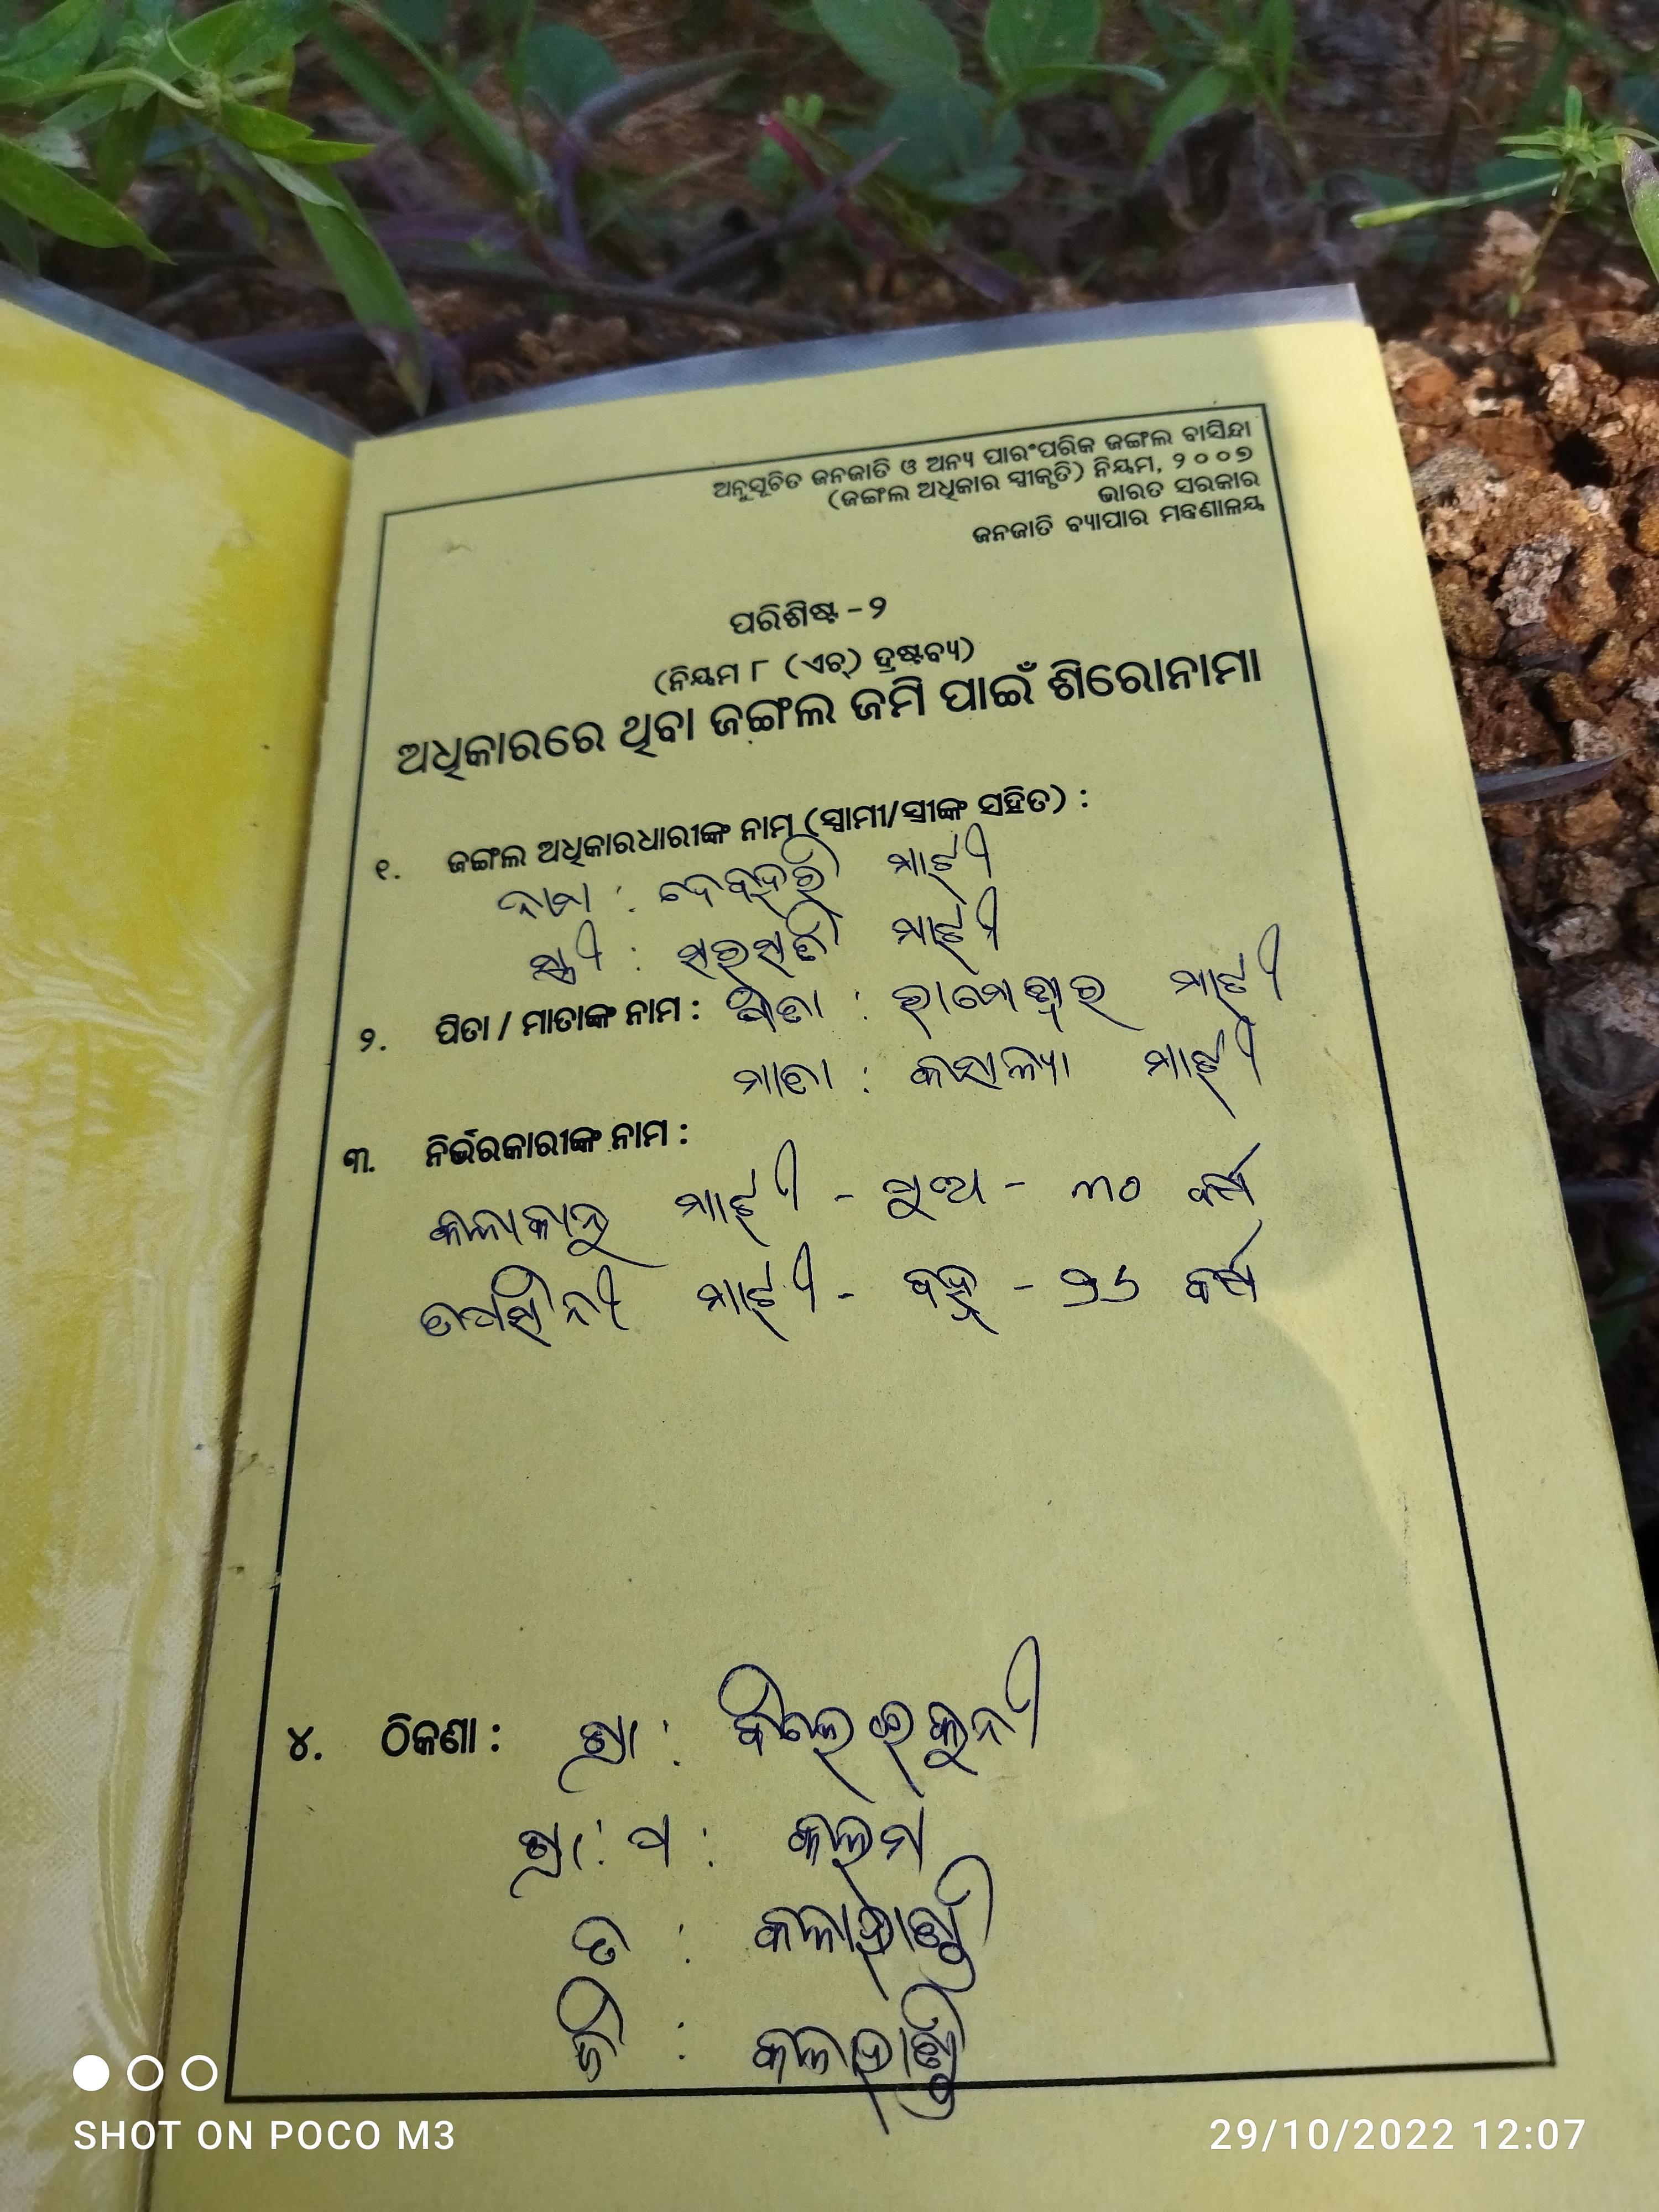 ଅନୁସୂଚିତ ଜନଜାତି ଓ ଅନ୍ୟ ପାରଂପରିକ ଜଙ୍ଗଲ ବାସିନ୍ଦା
(ଜଙ୍ଗଲ ଅଧିକାର ସ୍ୱୀକୃତି) ନିୟମ, ୨୦୦୭
ଭାରତ ସରକାର
ଜନଜାତି ବ୍ୟାପାର ମନ୍ତ୍ରଣାଳୟ
ପରିଶିଷ୍ଟ - ୨
(ନିୟମ ୮ (ଏଚ୍) ଦ୍ରଷ୍ଟବ୍ୟ)
ଅଧିକାରରେ ଥିବା ଜଙ୍ଗଲ ଜମି ପାଇଁ ଶିରୋନାମା
୧. ଜଙ୍ଗଲ ଅଧିକାରଧାରୀଙ୍କ ନାମ (ସ୍ୱାମୀ/ସ୍ତ୍ରୀଙ୍କ ସହିତ) :
ନାମ : ମାଝୀ
ସ୍ତ୍ରୀ : ମାଝୀ
୨. ପିତା / ମାତାଙ୍କ ନାମ : ପିତା : ରାମେଶ୍ୱର ମାଝୀ
ମାତା : ମାଝୀ
୩. ନିର୍ଭରକାରୀଙ୍କ ନାମ :
ମାଝୀ - ପୁଅ - ୩୦ ବର୍ଷ
ମାଝୀ - ବର୍ଷ
୪. ଠିକଣା : ଗ୍ରା :
ଗ୍ରା: ପ :
ତ : କଳାହାଣ୍ଡି
ଜି : କଳାହାଣ୍ଡି
SHOT ON POCO M3
29/10/2022 12:07